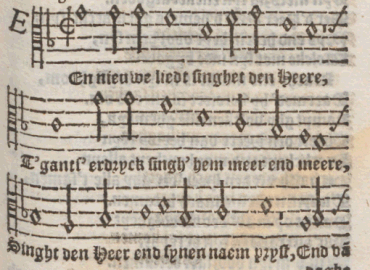 E
En nieuwe liedt singhet den Heere,
T'gants' erdzyck singh' hem meer end meere,
Singht den Heer end synen naem pryst, End vā